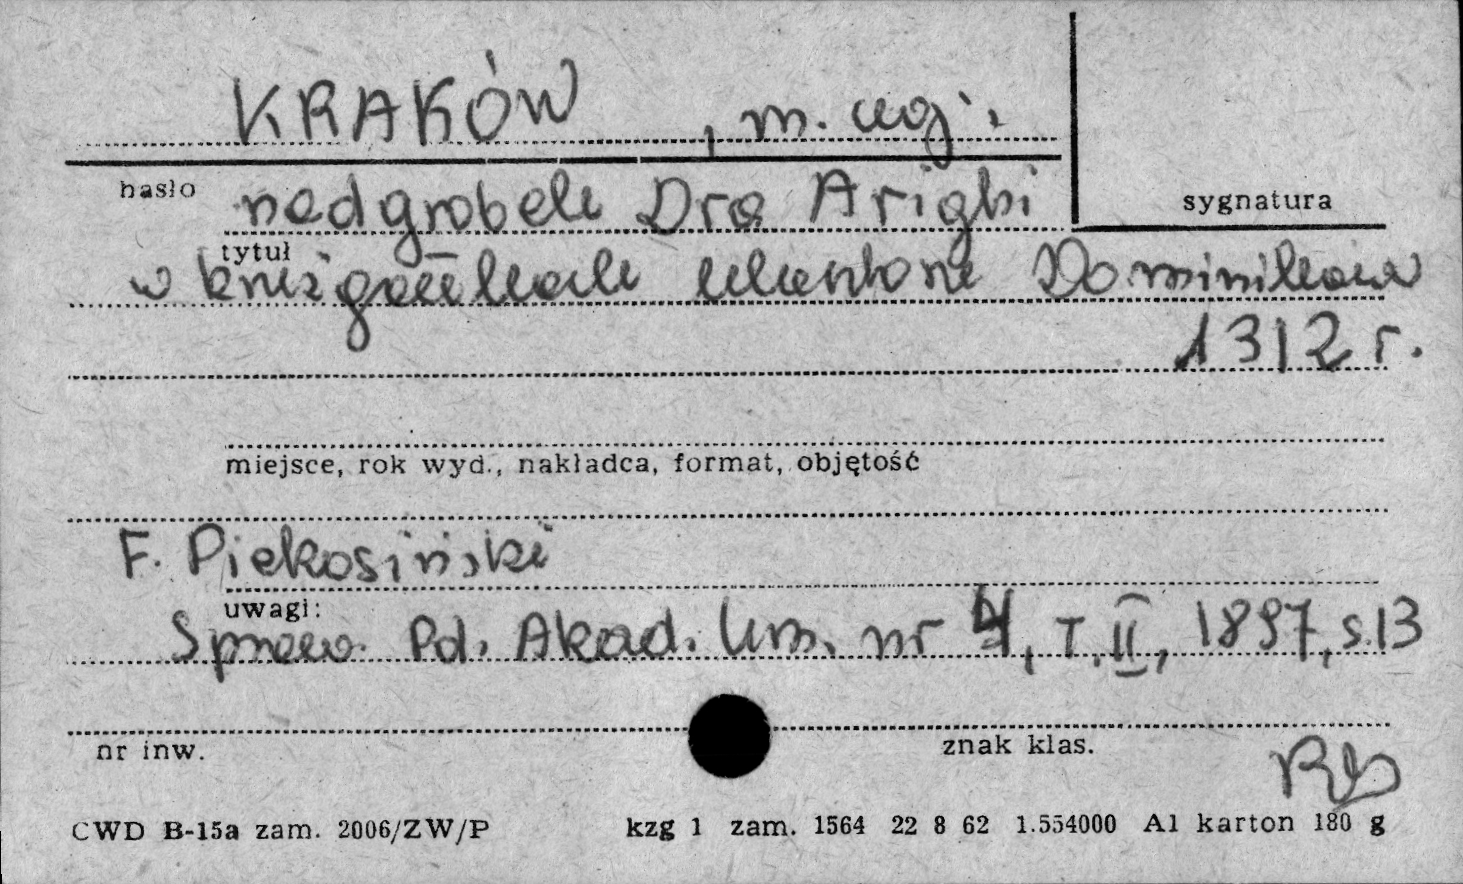 KRAKÓW , m.
hasło nadgrobek Dra Arighi
sygnatura
tytuł
w krużgankach klasztoru Dominikanów
1312 r.
miejsce, rok wyd., nakładca, format, objętość
F. Piekosiński
uwagi:
Spraw. Pd. Akad. Um. nr 4, T. II, 1897, s. 13
nr inw.
znak klas.
CWD B-15a zam. 2006/ZW/P kzg 1 zam. 1564 22 8 62 1.554000 A1 karton 180 g